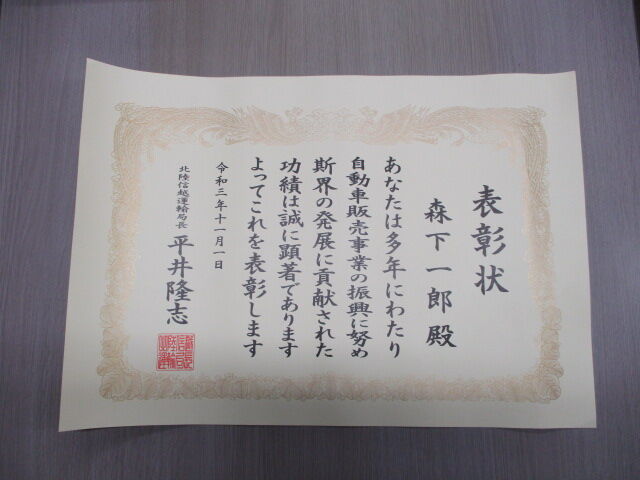 表彰状
森下一郎殿
あなたは多年にわたり
自動車販売事業の振興に努め
斯界の発展に貢献された
功績は誠に顕著であります
よってこれを表彰します
令和三年十一月一日
北陸信越運輸局長 平井隆志